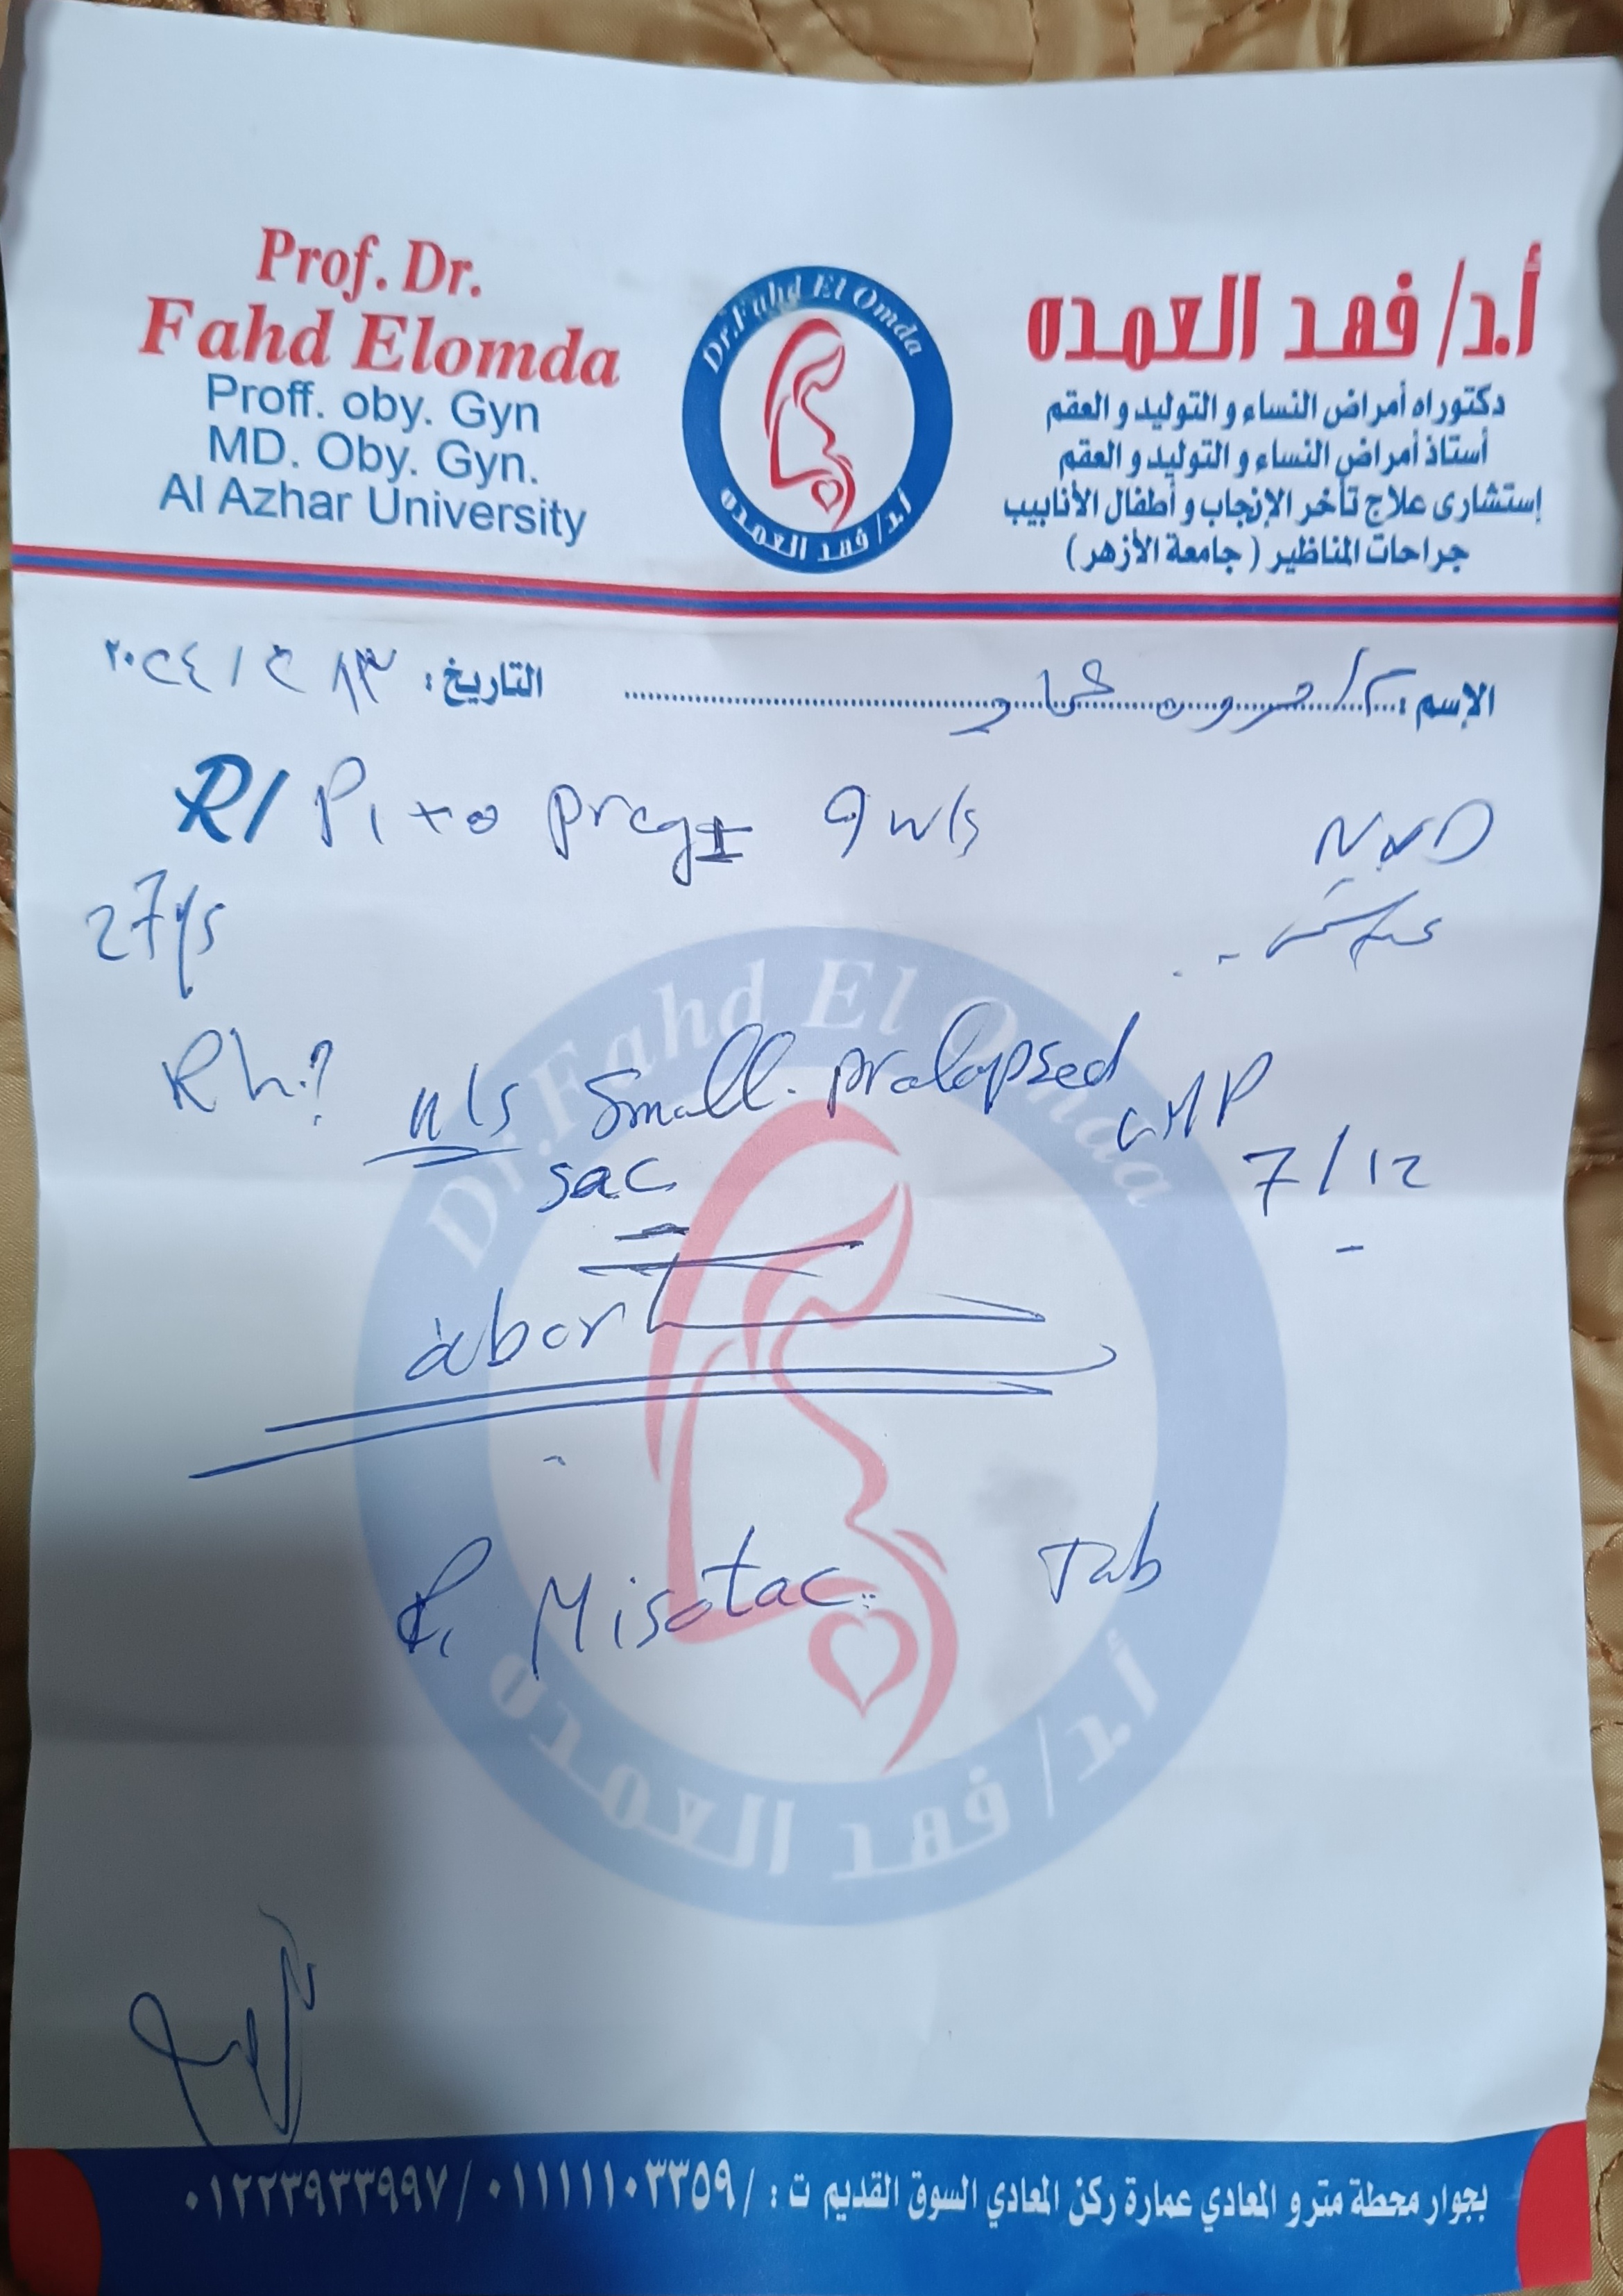 Prof. Dr.
Fahd Elomda
Proff. oby. Gyn
MD. Oby. Gyn.
Al Azhar University
Dr.Fahd El Omda
أ.د/ فهد العمده
أ.د/ فهد العمده
دكتوراه أمراض النساء و التوليد و العقم
أستاذ أمراض النساء و التوليد و العقم
إستشارى علاج تأخر الإنجاب و أطفال الأنابيب
جراحات المناظير ( جامعة الأزهر )
الإسم :
التاريخ :
R/ P1+0 preg 9 w/s
NVD
27 y/s
Rh? u/s Small prolapsed
sac
LMP
7/12
abort
R, Misotac Tab
Dr.Fahd El Omda
أ.د/ فهد العمده
بجوار محطة مترو المعادي عمارة ركن المعادي السوق القديم ت : / ٠١١١١١٠٣٣٥٩ / ٠١٢٢٣٩٣٣٩٩٧